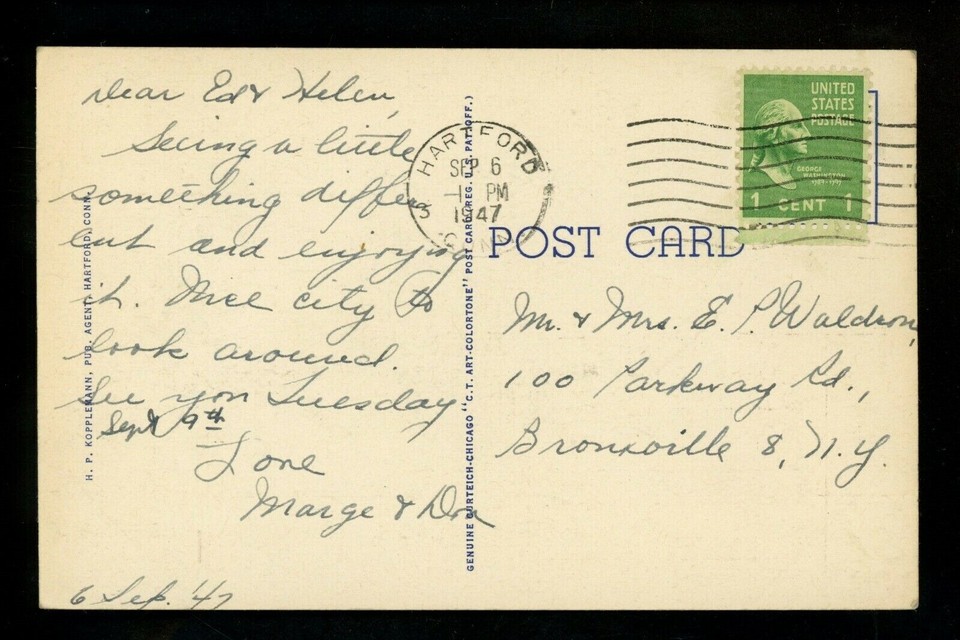 Dear Ed & Helen,
Seeing a little
something differ
ent and enjoying
it. Nice city to
look around.
See you Tuesday
Sept 9th
Love
Marge & Don
6 Sep. '47
H. P. KOPPLEMANN, PUB. AGENT, HARTFORD, CONN.
GENUINE CURTEICH-CHICAGO "C. T. ART-COLORTONE" POST CARD (REG. U.S. PAT. OFF.)
HARTFORD
SEP 6
PM
1947
CONN
3
UNITED
STATES
POSTAGE
GEORGE
WASHINGTON
1789-1797
1 CENT 1
POST CARD
Mr. & Mrs. E. P. Waldron,
100 Parkway Rd.,
Bronxville 8, N.Y.